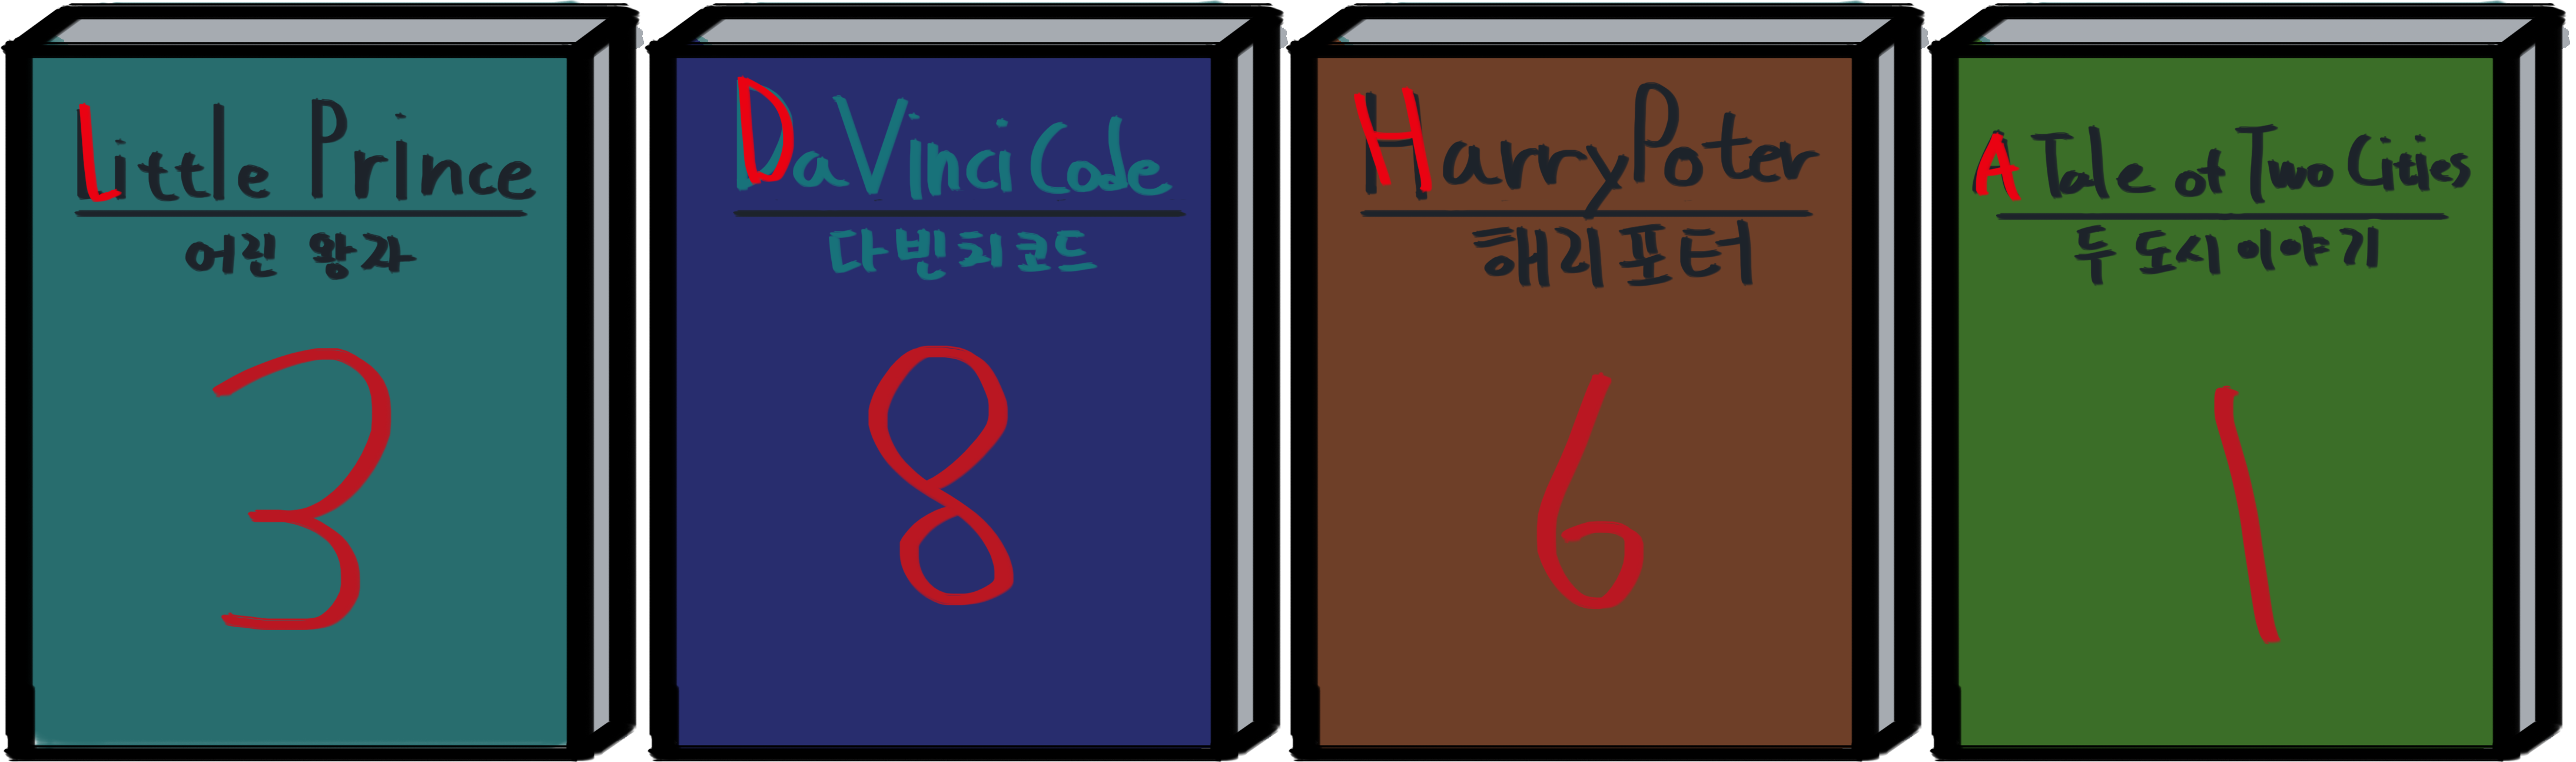 Little Prince
어린 왕자
3
Da Vinci Code
다빈치코드
8
Harry Poter
해리포터
6
A Tale of Two Cities
두 도시 이야기
1